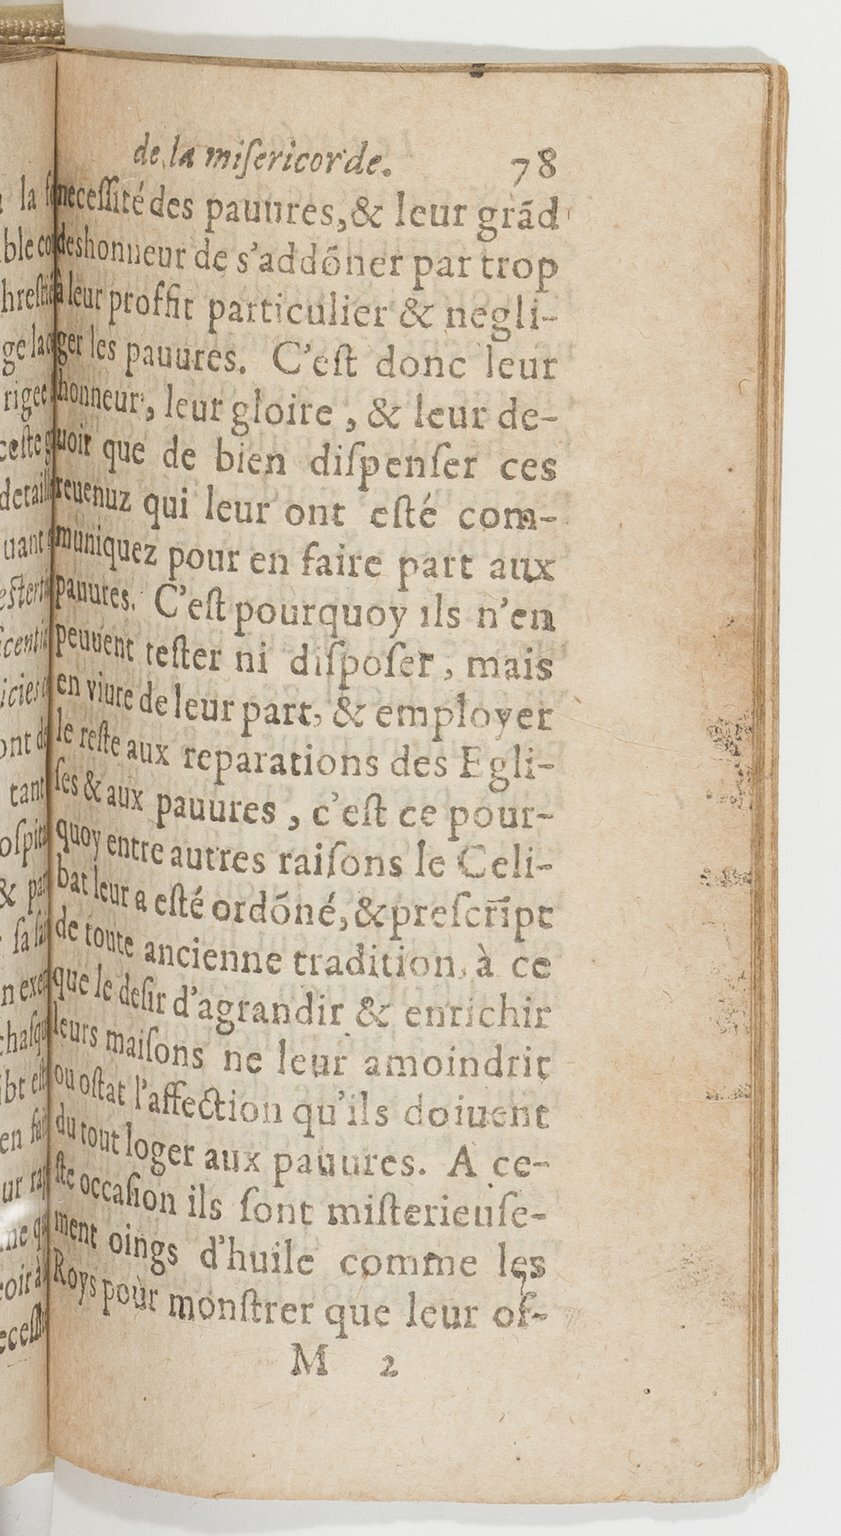 de la miſericorde. 78
neceſſité des pauures, & leur grãd
deshonneur de s'addõner par trop
à leur proffit particulier & negli-
ger les pauures. C'eſt donc leur
honneur, leur gloire, & leur de-
uoir que de bien diſpenſer ces
reuenuz qui leur ont eſté com-
muniquez pour en faire part aux
pauures. C'eſt pourquoy ils n'en
peuuent teſter ni diſpoſer, mais
en viure de leur part, & employer
le reſte aux reparations des Egli-
ſes & aux pauures, c'eſt ce pour-
quoy entre autres raiſons le Celi-
bat leur a eſté ordõné, & preſcript
de toute ancienne tradition, à ce
que le deſir d'agrandir & enrichir
leurs maiſons ne leur amoindrit
ou oſtat l'affection qu'ils doiuent
du tout loger aux pauures. A ce-
ſte occaſion ils ſont miſterieuſe-
ment oings d'huile comme les
Roys pour monſtrer que leur of-
M 2